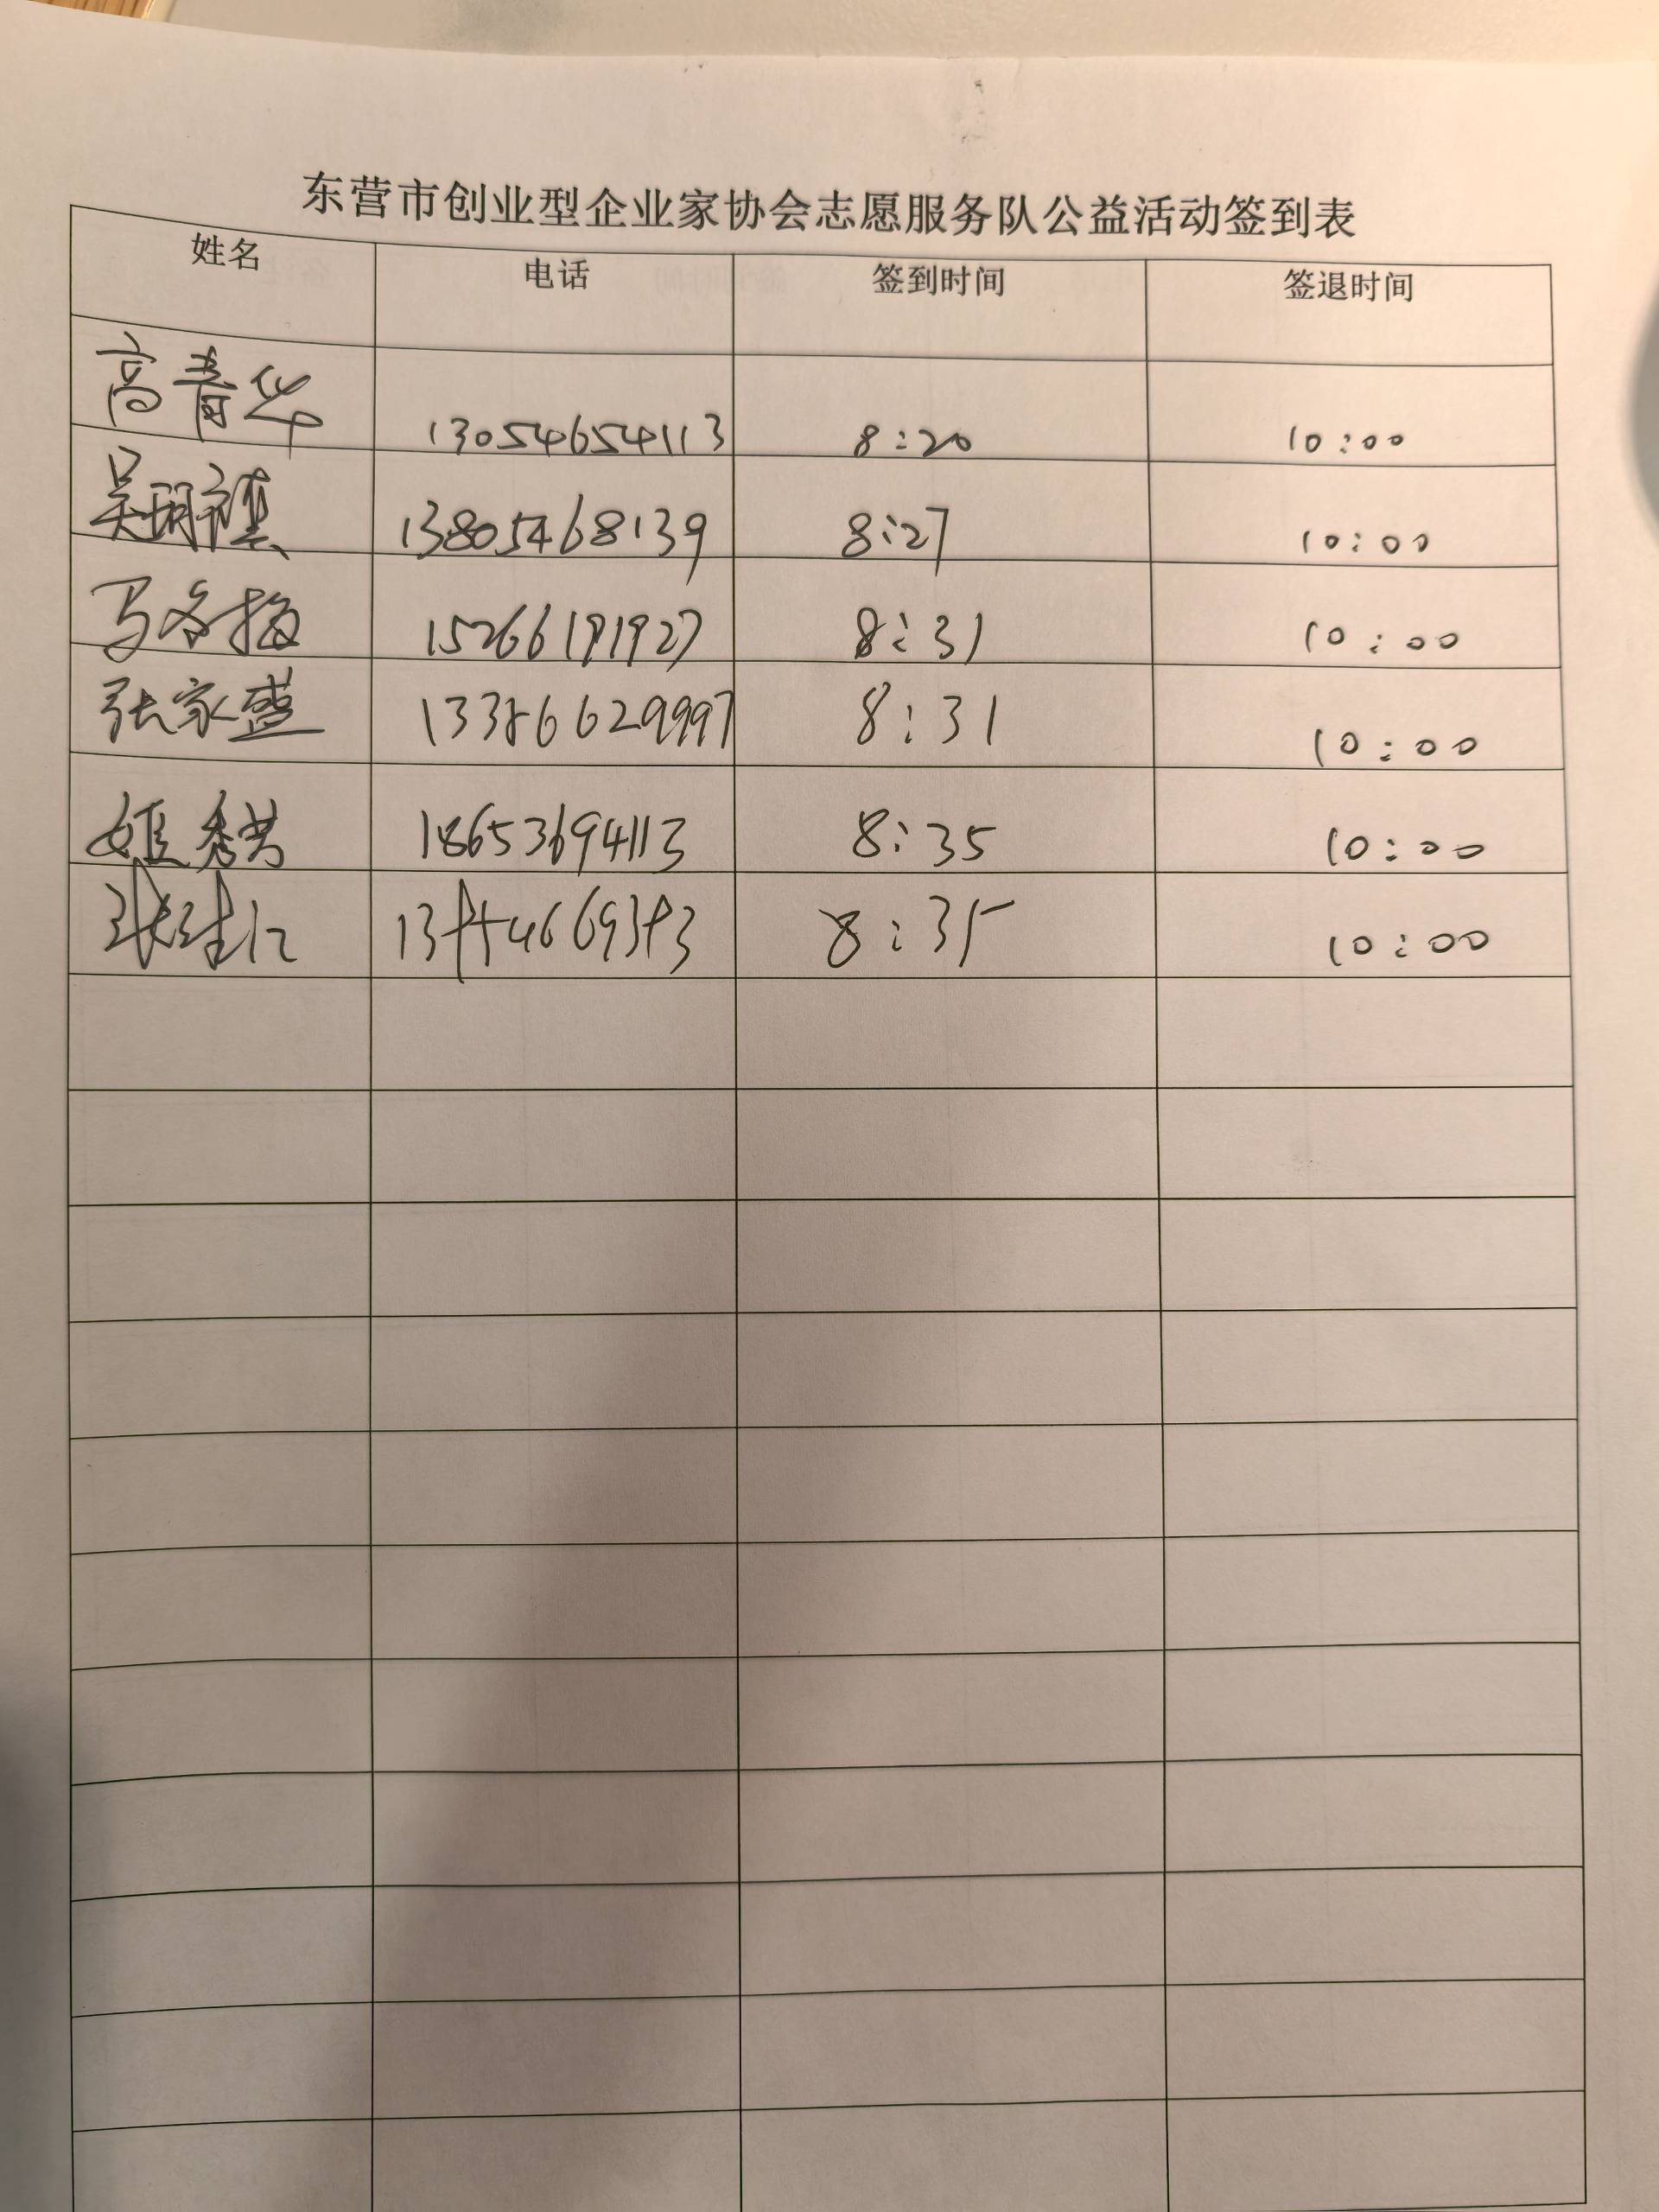 东营市创业型企业家协会志愿服务队公益活动签到表
姓名 电话 签到时间 签退时间
高青华 13054654113 8:20 10:00
吴珂禛 13805468139 8:27 10:00
马冬梅 15266191927 8:31 10:00
张家盛 13386629997 8:31 10:00
姬秀芸 18653694113 8:35 10:00
8:35 10:00